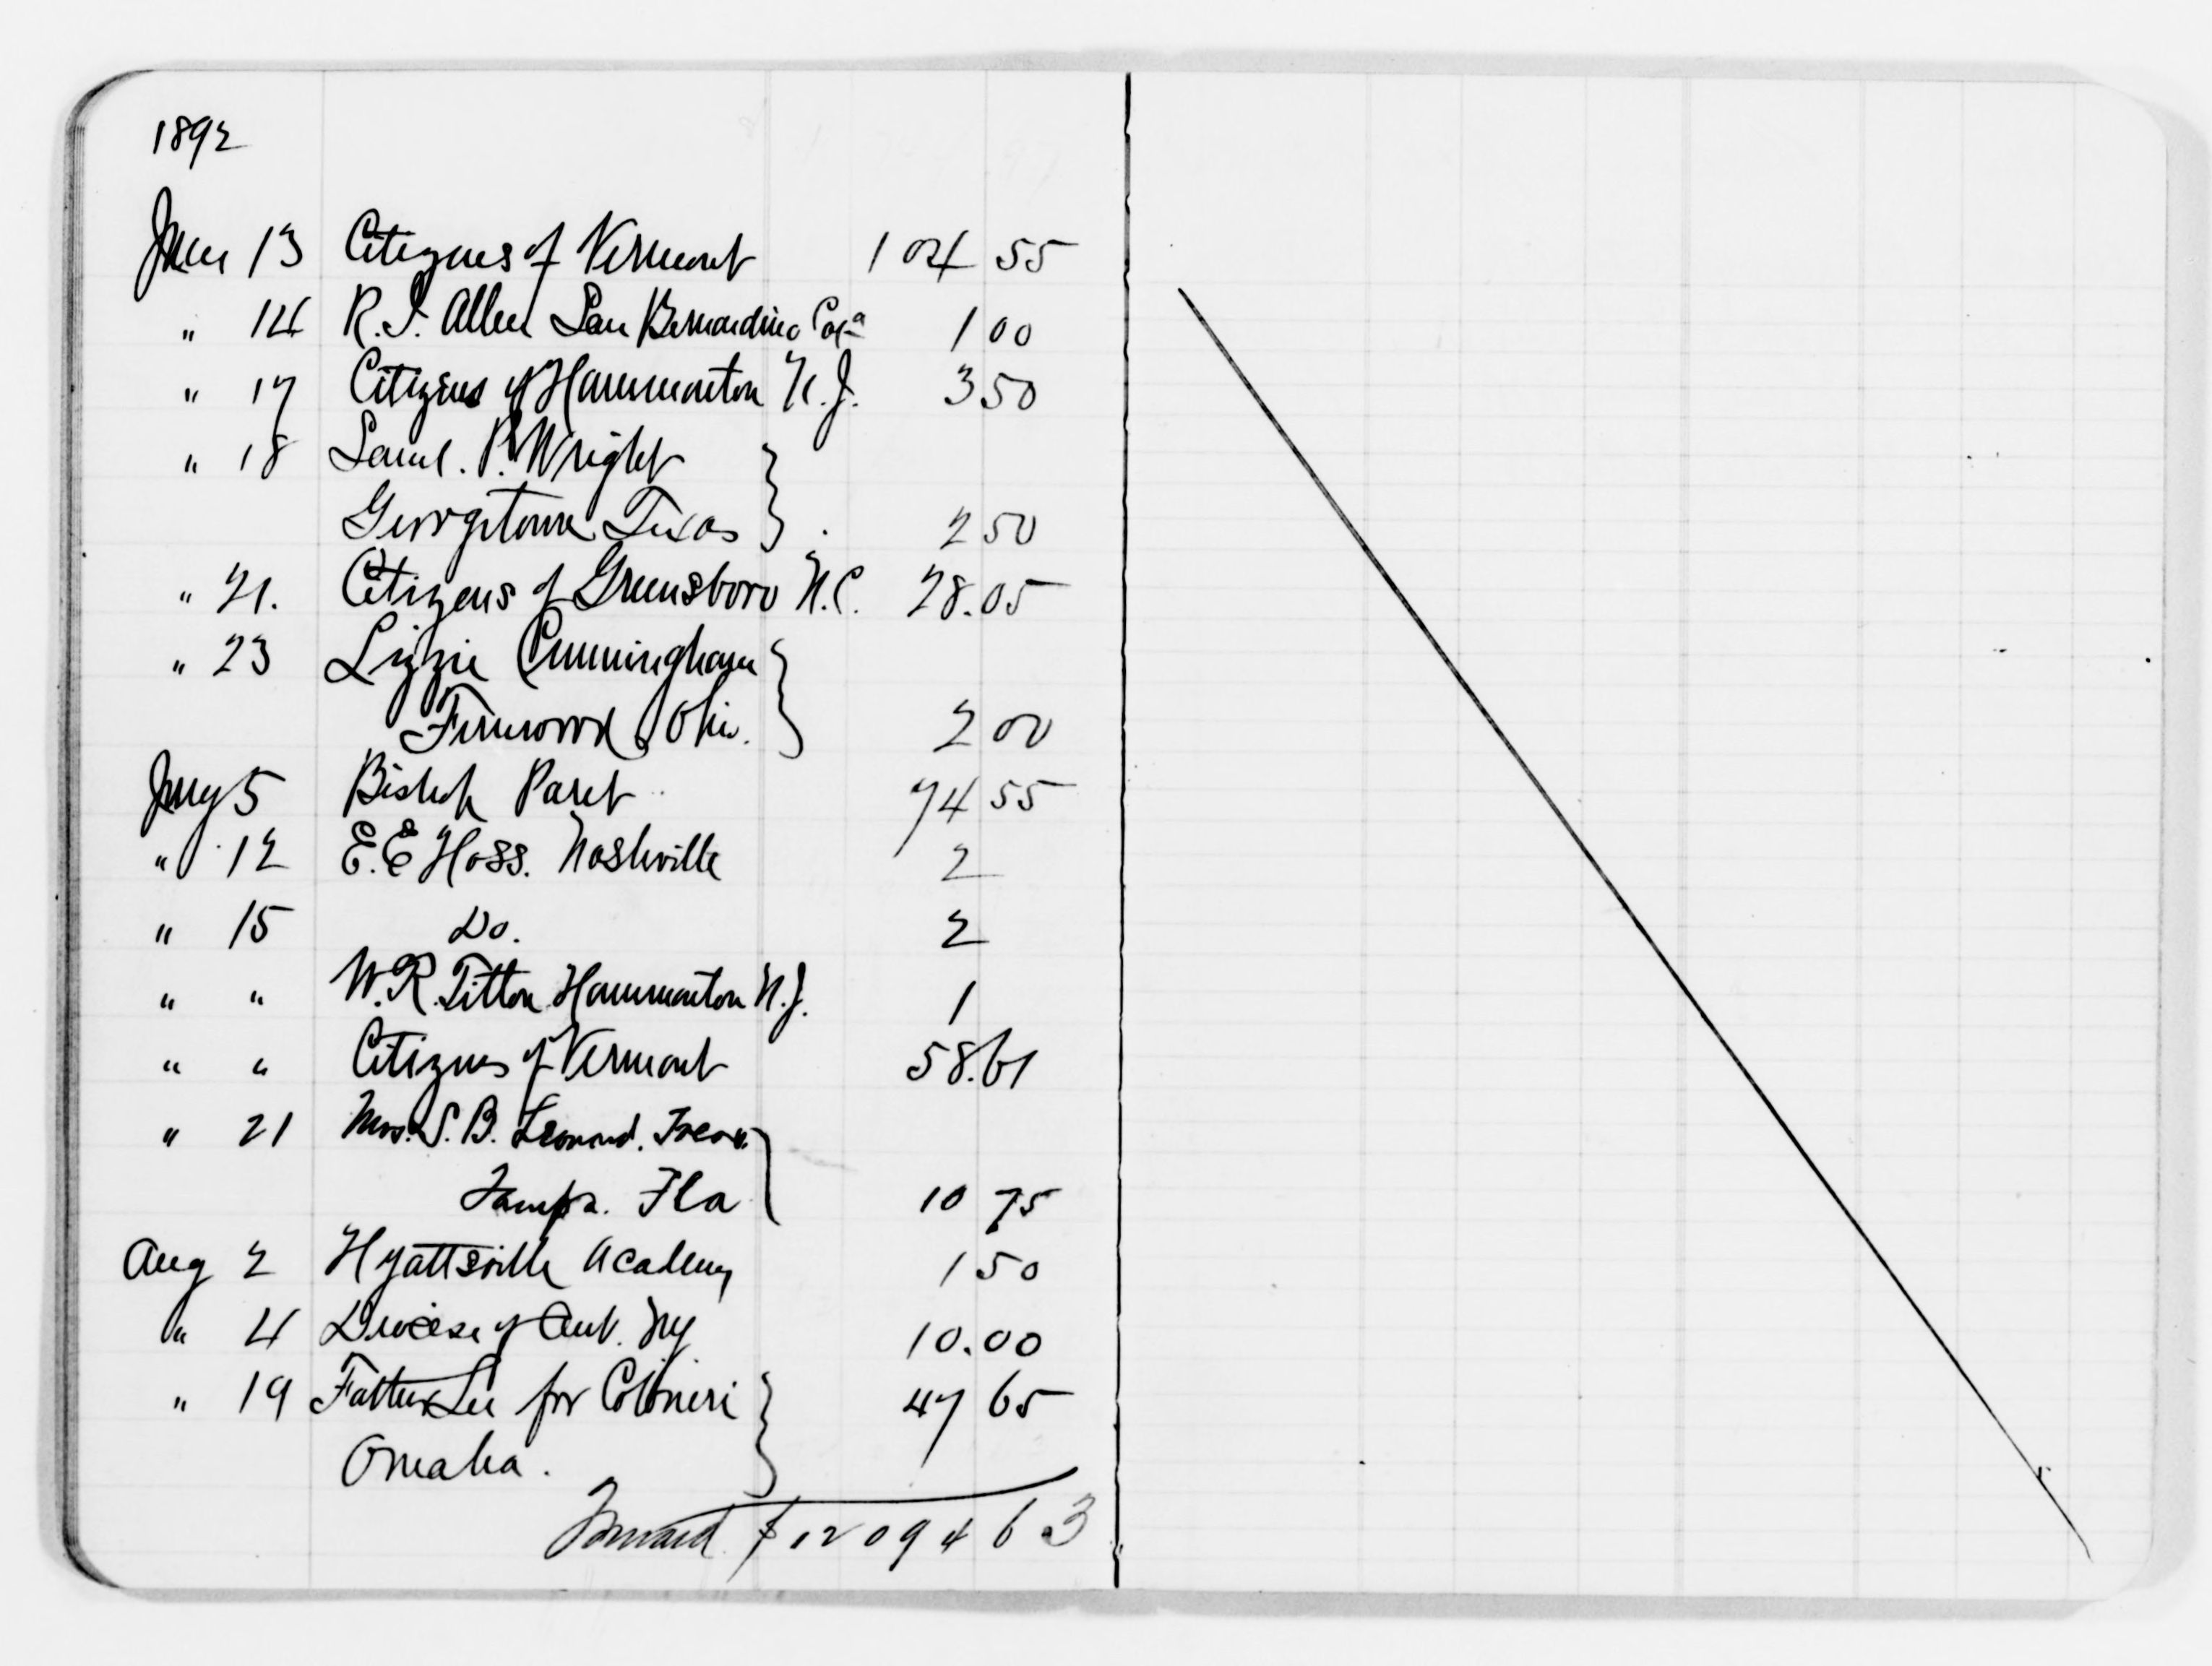 1892
June 13 Citizens of Vermont 104 55
" 14 R. S. Allen San Bernardino Cala 1 00
" 17 Citizens of Hammonton N.J. 3 50
" 18 Saml. P. Wright
Georgetown Texas } 2 50
" 21. Citizens of Greensboro N.C. 28.05
" 23 Lizzie Cunningham
Fernwood Ohio. } 2 00
July 5 Bishop Paret 74 55
" 12 E. E Hoss. Nashville 2
" 15 Do. 2
" " W. R. Tilton Hammonton N.J. 1
" " Citizens of Vermont 58.61
" 21 Mrs. S. B. Leonard. Treas.
Tampa. Fla } 10 75
Aug 2 Hyattsville Academy 1 50
" 4 Diocese of Cent. NY 10.00
" 19 Father Lee for
Omaha. } 47 65
Forward $ 12094 63